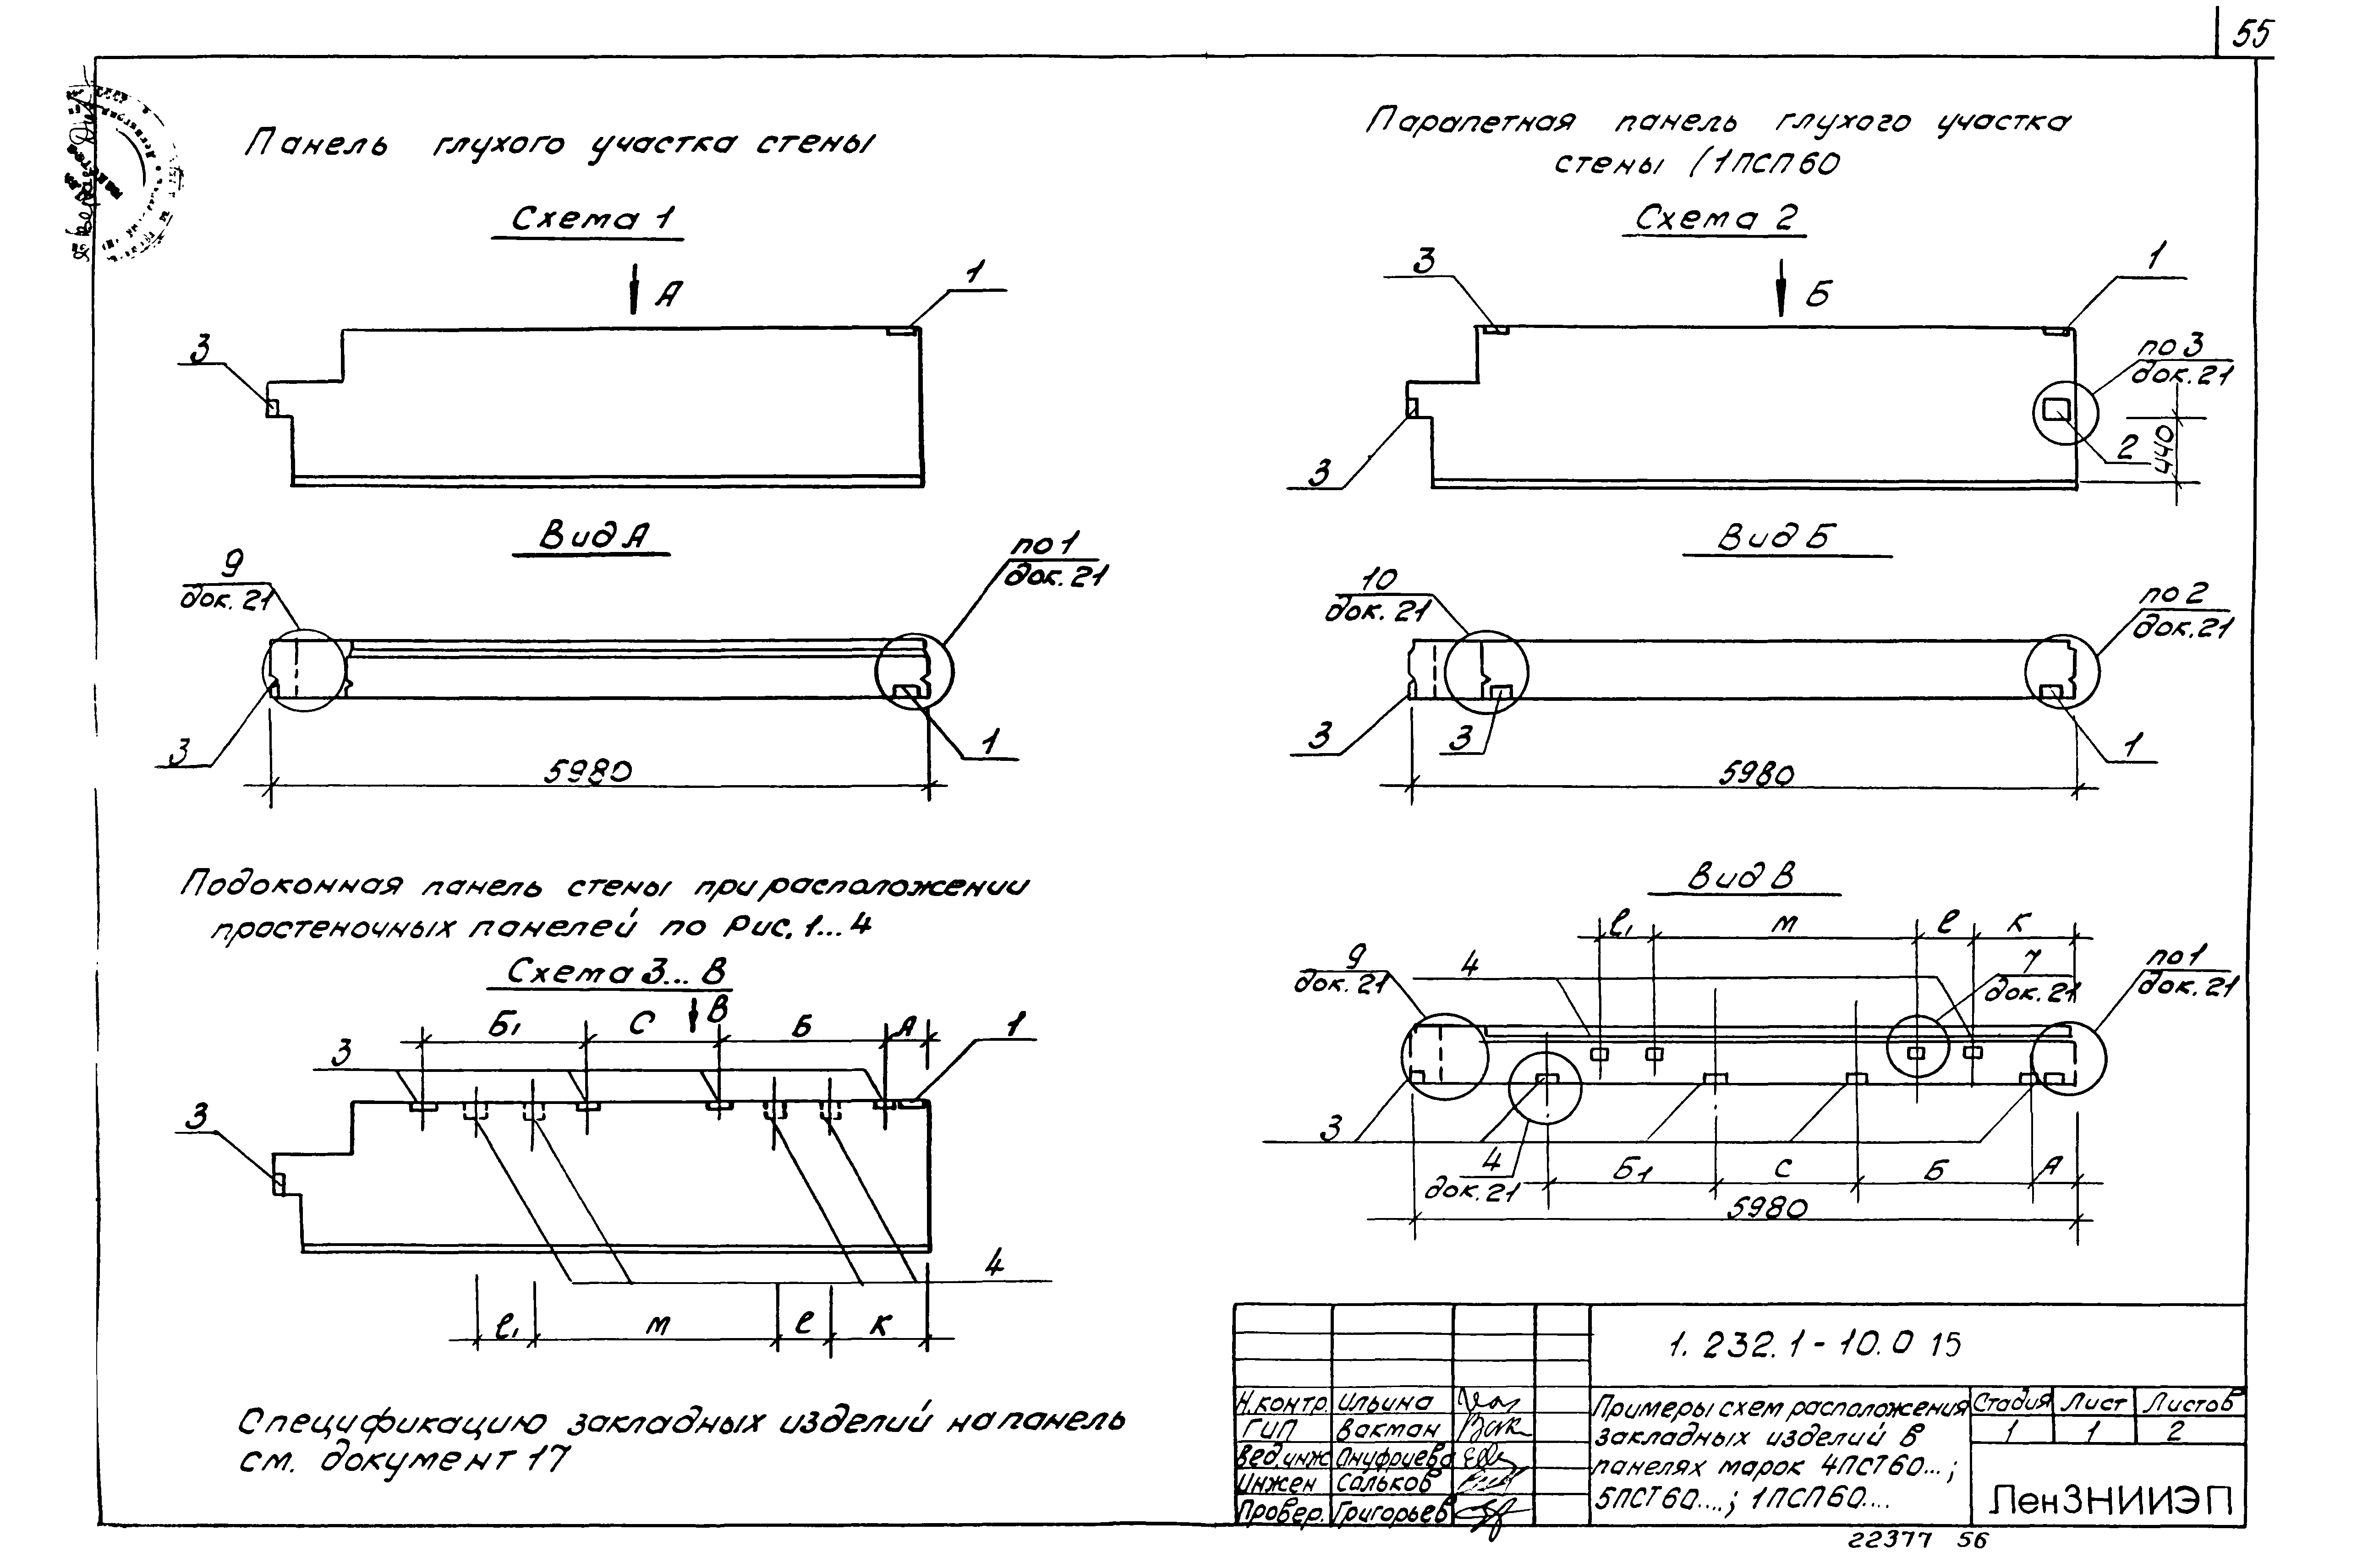 55
Панель глухого участка стены
Схема 1
А
1
3
Вид А
9
док. 21
по 1
док. 21
3
1
5980
Парапетная панель глухого участка
стены (1ПСП60
Схема 2
3
Б
1
по 3
док. 21
2
440
3
Вид Б
10
док. 21
по 2
док. 21
3
3
1
5980
Подоконная панель стены при расположении
простеночных панелей по Рис. 1...4
Схема 3... 8
В
Б1 С Б А
1
3
3
4
l1 м l к
Вид В
l1 м l к
9
док. 21
4
7
док. 21
по 1
док. 21
3
4
док. 21
Б1 С Б А
5980
Спецификацию закладных изделий на панель
см. документ 17
1. 232. 1 - 10. 0 15
Н.контр. Ильина
ГИП Вакман
Вед.инж Ануфриева
Инжен Сальков
Провер. Григорьев
Примеры схем расположения
закладных изделий в
панелях марок 4ПСТ60...;
5ПСТ60....; 1ПСП60....
Стадия Лист Листов
1 1 2
ЛенЗНИИЭП
22377 56